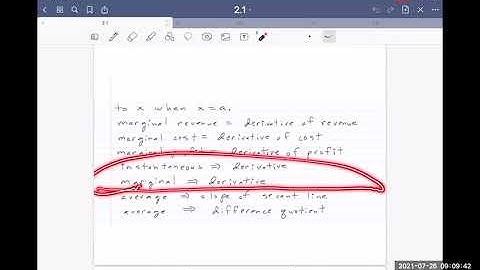 2.1
2.1
to x when x=a.
marginal revenue = derivative of revenue
marginal cost = derivative of cost
marginal profit = derivative of profit
instantaneous ⇒ derivative
marginal ⇒ derivative
average ⇒ slope of secant line
average ⇒ difference quotient
2021-07-26 09:09:42